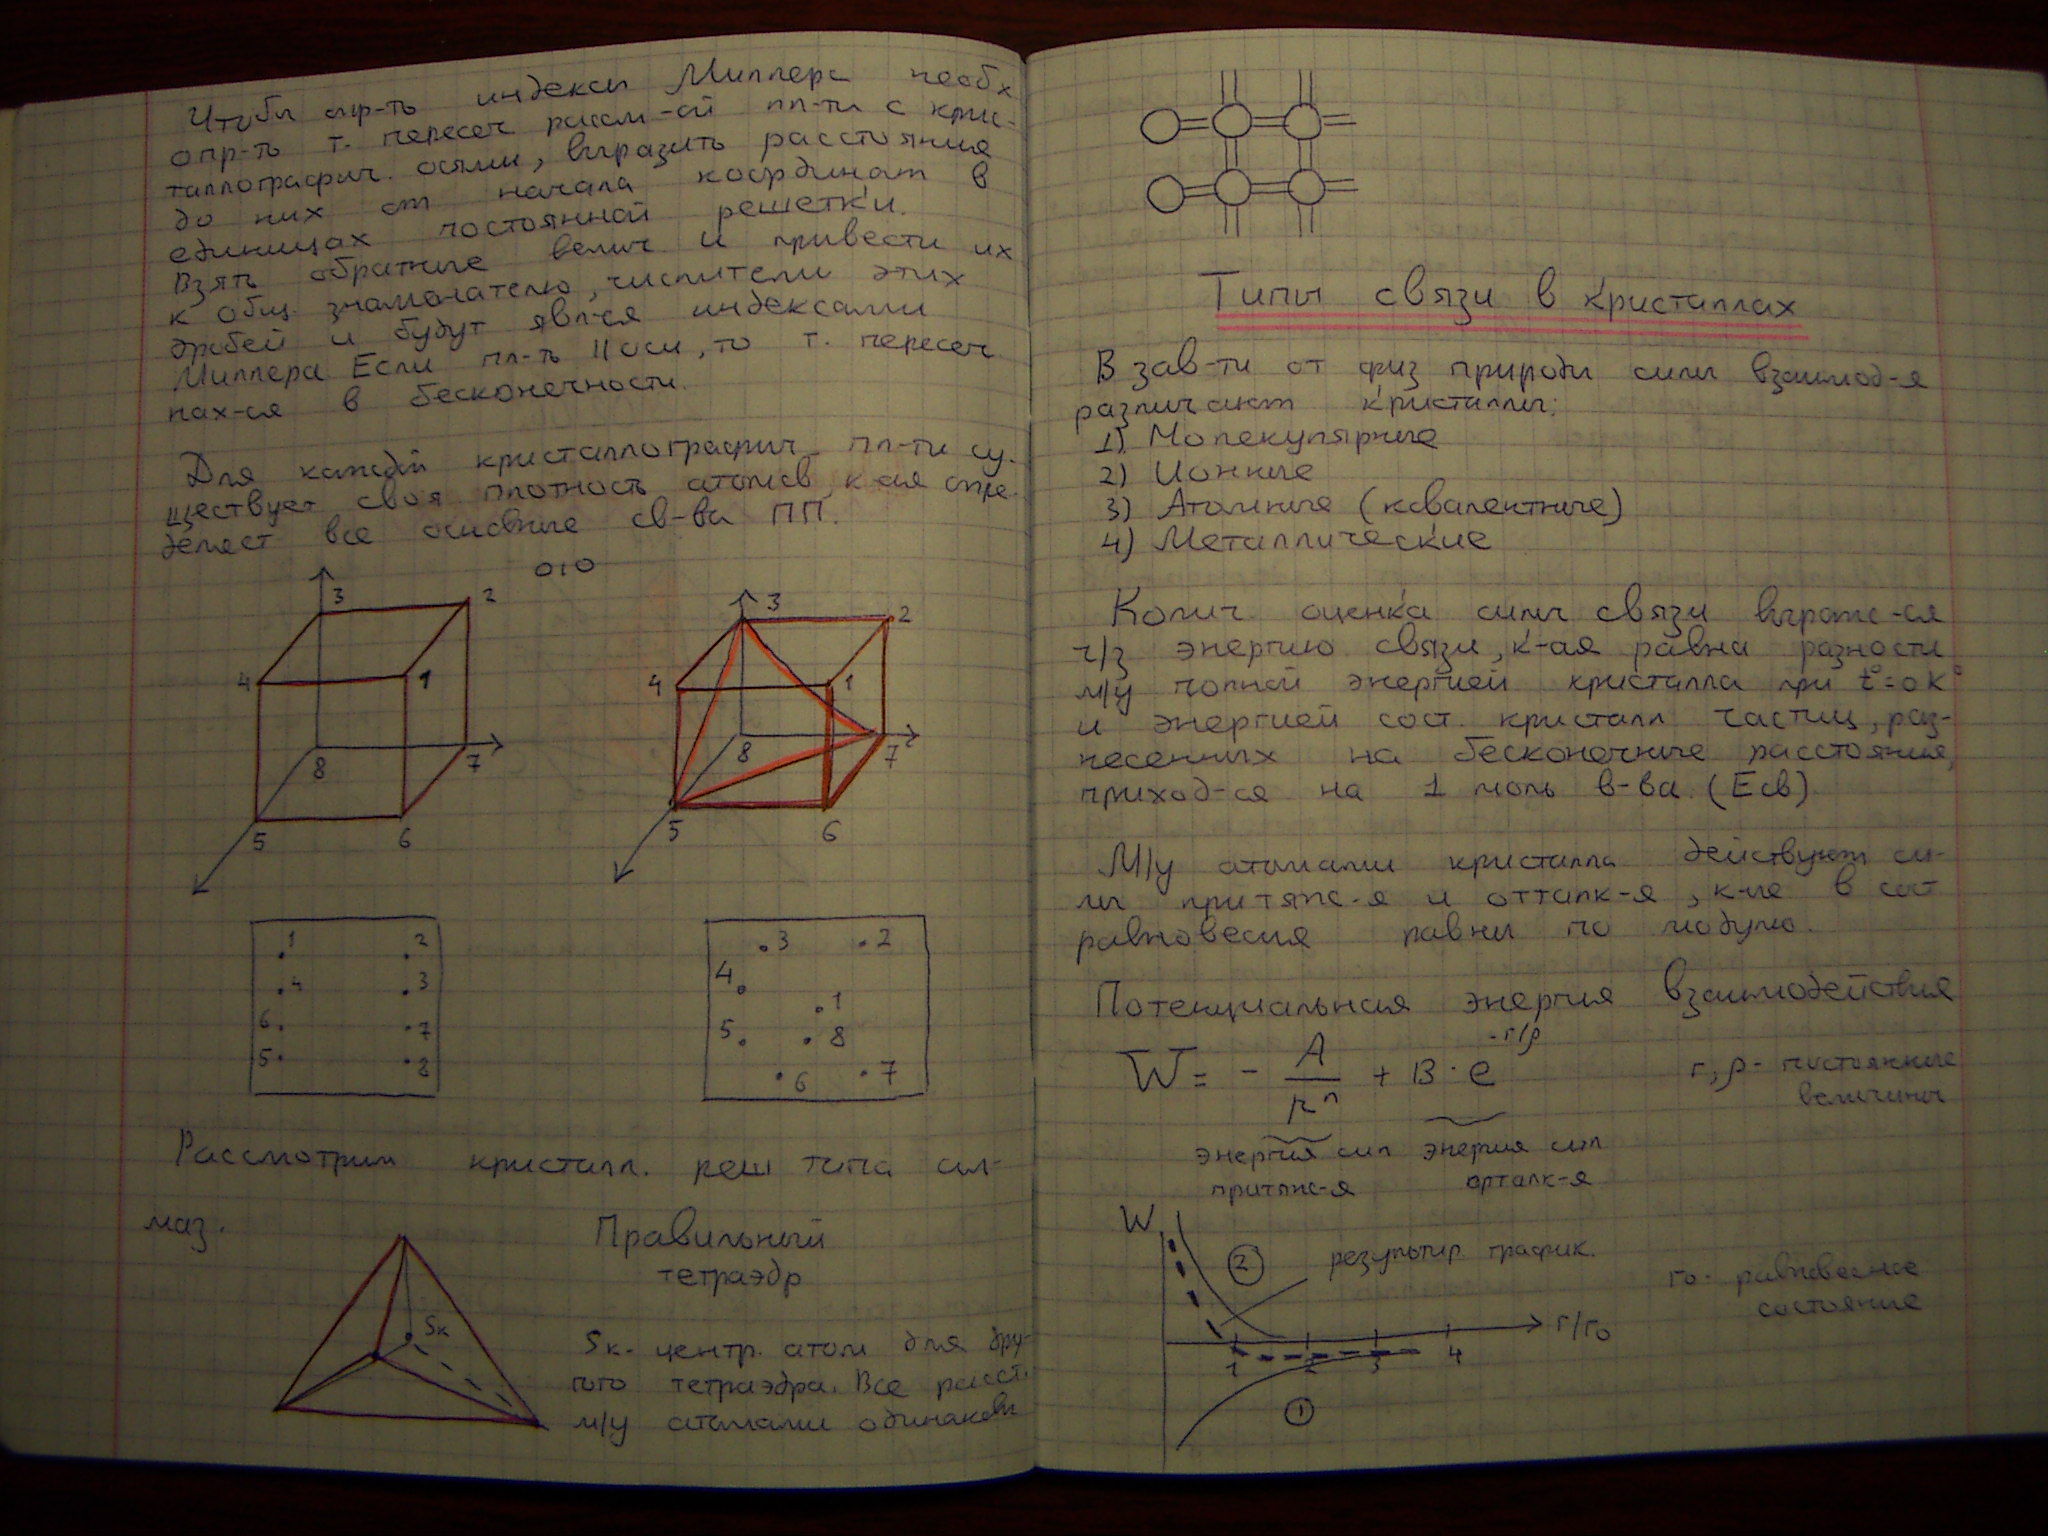 Чтобы опр-ть индексы Миллера необх
опр-ть т. пересеч рассм-ой пл-ти с крис-
таллографич. осями, выразить расстояние
до них от начала координат в
единицах постоянной решетки.
Взять обратные велич и привести их
к общ. знаменателю, числители этих
дробей и будут явл-ся индексами
Миллера. Если пл-ть || оси, то т. пересеч
нах-ся в бесконечности.
Для каждой кристаллографич. пл-ти су-
ществует своя плотность атомов, к-ая опре-
деляет все основные св-ва ПП.
010
3 2
4 1
8 7
5 6
3 2
4 1
8 7
5 6
1 2
4 3
6 7
5 8
3 2
4
1
5 8
6 7
Рассмотрим кристалл. реш типа ал-
маз.
Правильный
тетраэдр
Sк
Sк- центр. атом для дру-
гого тетраэдра. Все расст.
м/у атомами одинаковы
Типы связи в кристаллах
В зав-ти от физ природы силы взаимод-я
различают кристаллы:
1) Молекулярные
2) Ионные
3) Атомные (ковалентные)
4) Металлические
Колич оценка силы связи выраж-ся
ч/з энергию связи, к-ая равна разности
м/у полной энергией кристалла при t°=0 K°
и энергией сост. кристалл частиц, раз-
несенных на бесконечные расстояния,
приход-ся на 1 моль в-ва. (Eсв)
М/у атомами кристалла действуют си-
лы притяж-я и отталк-я, к-ые в сост
равновесия равны по модулю.
Потенциальная энергия взаимодействия
W = - A/r^n + B · e^(-r/ρ) r, ρ - постоянные
величины
энергия сил энергия сил
притяж-я отталк-я
W
2 результир. график.
r0- равновесное
состояние
1 2 3 4 r/r0
1